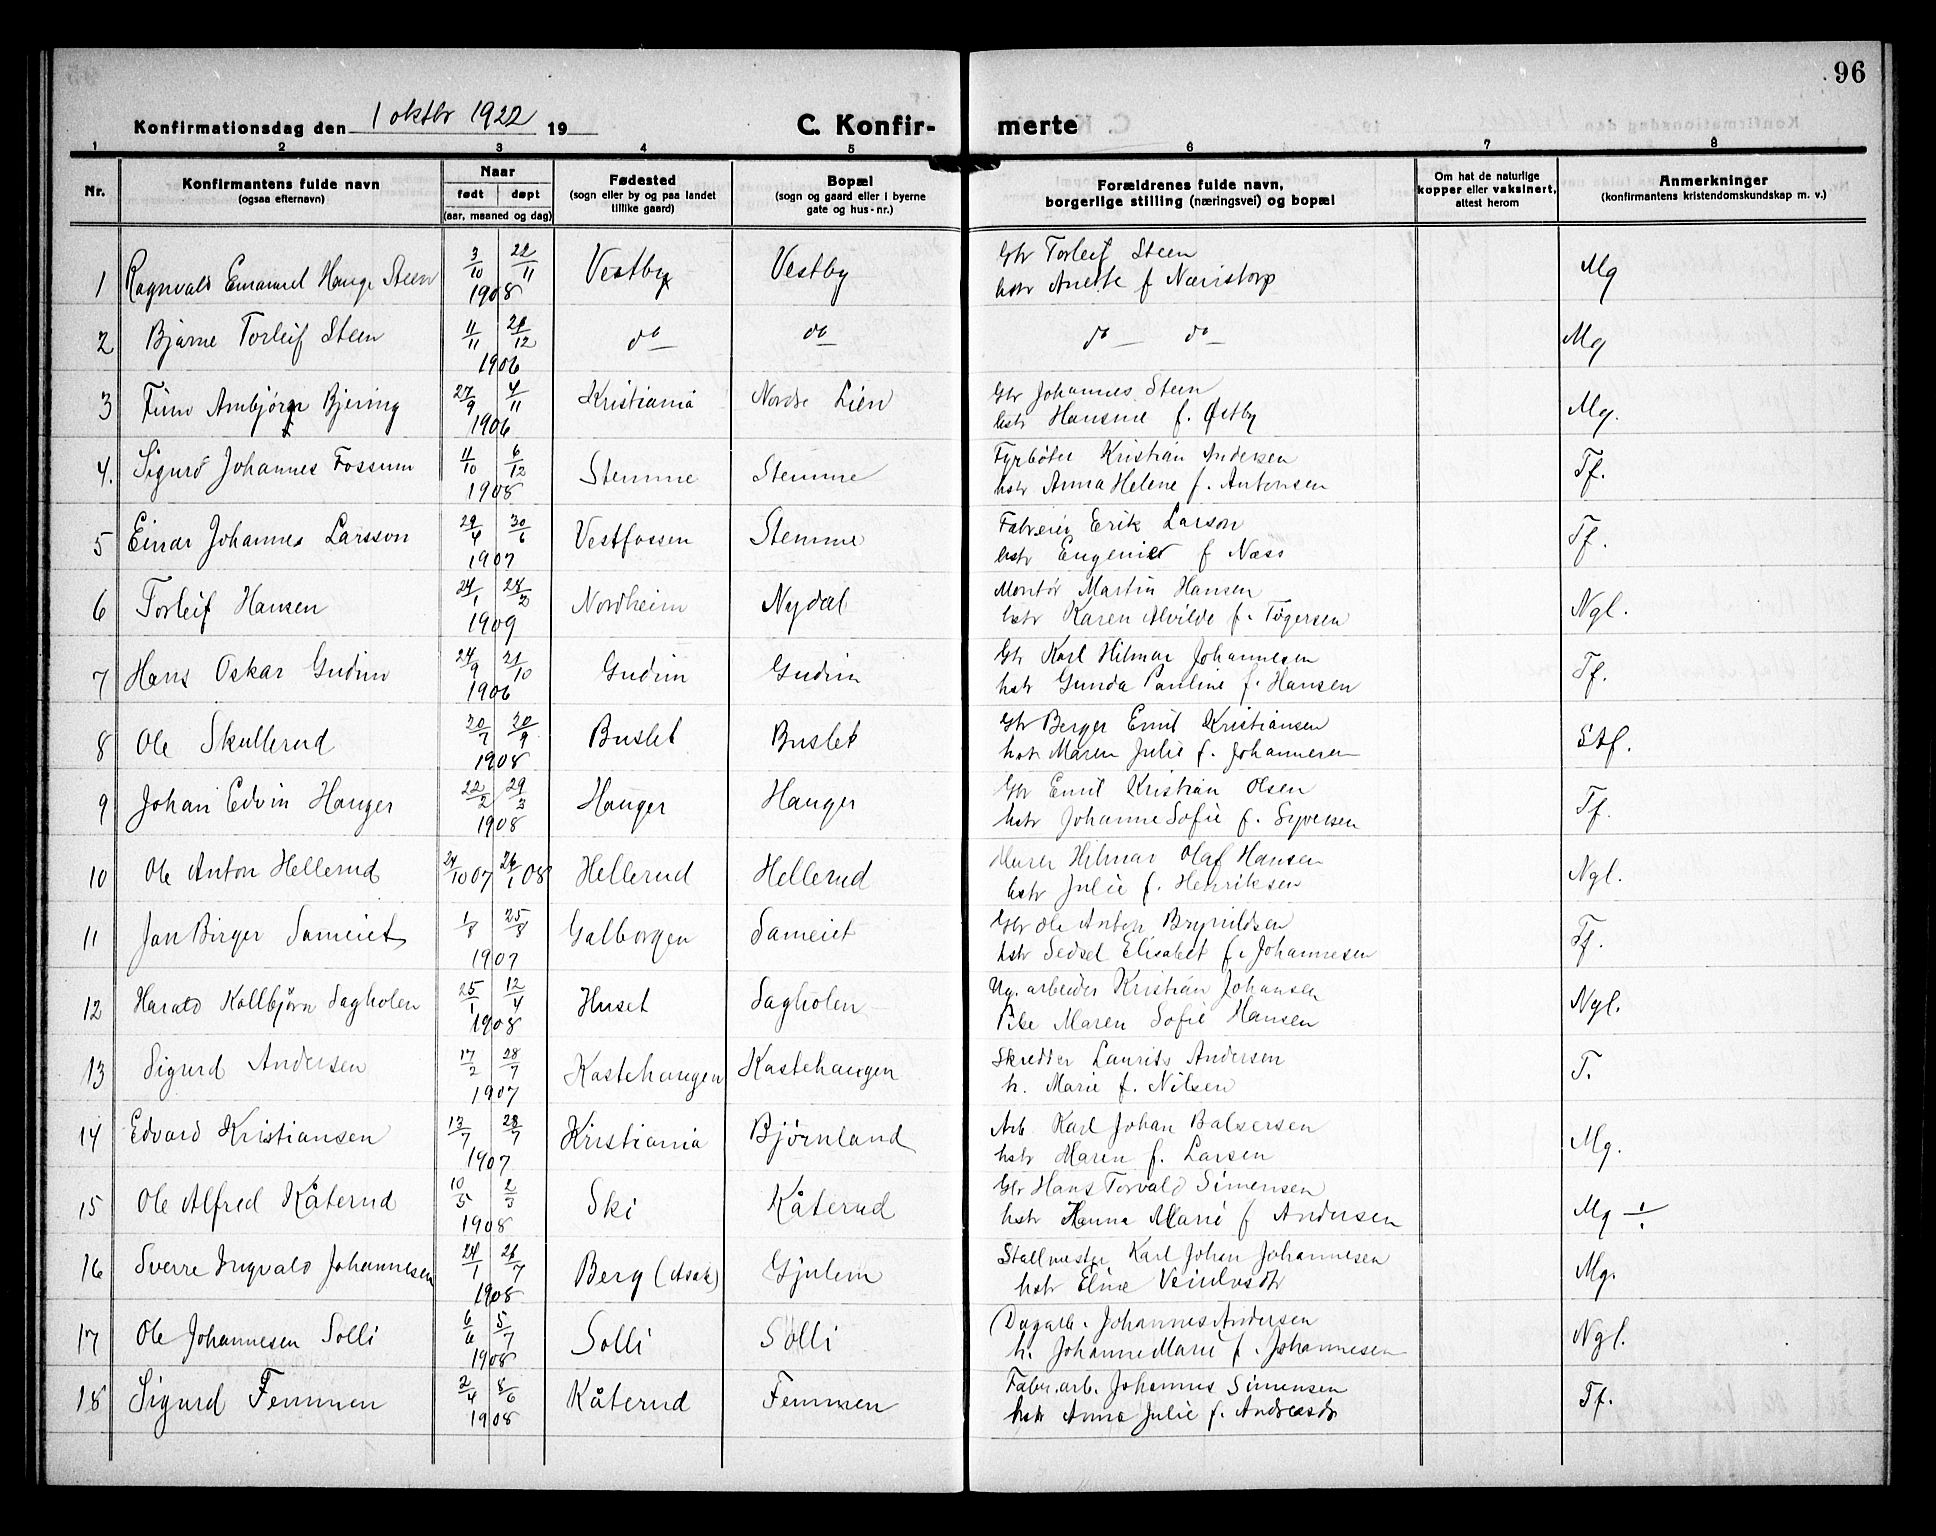 96
Konfirmationsdag den 1 oktbr 1922 19
C. Konfir- merte
1 2 3 4 5 6 7 8
Nr.
Konfirmantens fulde navn
(ogsaa efternavn)
Naar
født døpt
(aar, maaned og dag)
Fødested
(sogn eller by og paa landet
tillike gaard)
Bopæl
(sogn og gaard eller i byerne
gate og hus-nr.)
Forældrenes fulde navn,
borgerlige stilling (næringsvei) og bopæl
Om hat de naturlige
kopper eller vaksinert,
attest herom
Anmerkninger
(konfirmantens kristendomskundskap m. v.)
1 Ragnvald Emanuel Hauge Steen 3/10 22/11 1908 Vestby Vestby Gbr Torleif Steen
hstr Anette f Næristorp Mg
2 Bjarne Torleif Steen 11/11 29/12 1906 do do do do Mg
3 Finn Arnbjørn Bjering 27/9 4/11 1906 Kristiania Nordre Lien Gbr Johannes Steen
hstr Hansine f. Østby Mg.
4. Sigurd Johannes Fossum 11/10 6/12 1908 Stemme Stemme Fyrbøter Kristian Andersen
hstr Anna Helene f. Antonsen Tf.
5 Einar Johannes Larsson 29/4 30/6 1907 Vestfossen Stemme Erik Larson
hstr Eugenie f Næss Tf.
6 Torleif Hansen 24/1 28/2 1909 Nordheim Nydal Montør Martin Hansen
hstr Karen Alvilde f. Tøgersen Ngl.
7 Hans Oskar Gudim 24/9 21/10 1906 Gudim Gudim Gbr Karl Hilmar Johannesen
hstr Gunda Pauline f. Hansen Tf.
8 Ole Skullerud 20/7 20/9 1908 Buslet Buslet Gbr Berger Emil Kristiansen
hstr Maren Julie f. Johannesen Stf.
9 Johan Edvin Hauger 22/2 29/3 1908 Hauger Hauger Gbr Emil Kristian Olsen
hstr Johanne Sofie f. Syversen Tf.
10 Ole Anton Hellerud 24/10 07 26/1 08 Hellerud Hellerud Murer Hilmar Olaf Hansen
hstr Julie f. Henriksen Ngl.
11 Jan Birger Sameiet 1/8 25/8 1907 Galborgen Sameiet Gbr Ole Anton Brynildsen
hstr Sedsel Elisabet f. Johannesen Tf.
12 Harald Kollbjørn Sagholen 25/1 12/4 1908 Huset Sagholen Ug. arbeider Kristian Johansen
Pike Maren Sofie Hansen Ngl.
13 Sigurd Andersen 17/2 28/7 1907 Kastehaugen Kastehaugen Skredder Laurits Andersen
h. Marie f. Nilsen T.
14 Edvard Kristiansen 13/7 28/7 1907 Kristiania Bjørnland Arb Karl Johan Balsersen
hstr Maren f. Larsen Mg.
15 Ole Alfred Kåterud 10/5 2/3 1908 Ski Kåterud Gbr Hans Torvald Simensen
hstr Hanna Marie f Andersen Mg
16 Sverre Ingvald Johannesen 24/1 26/7 1908 Berg (Asak) Gjulem Karl Johan Johannesen
hstr Eline Mg.
17 Ole Johannesen Solli 6/6 5/7 1908 Solli Solli Dagarb. Johannes Andersen
h. Johanne Marie f. Johannesen Ngl.
18 Sigurd Femmen 2/4 8/6 1908 Kåterud Femmen Fabr. arb. Johannes Simensen
hstr Anna Julie f. Andreasdr Tf.